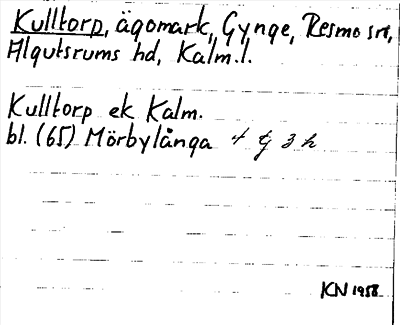 Kulltorp, ägomark, Gynge, Resmo sn,
Algutsrums hd, Kalm.l.
Kulltorp ek Kalm.
bl. (65) Mörbylånga 4 G 3 h
KN 1958